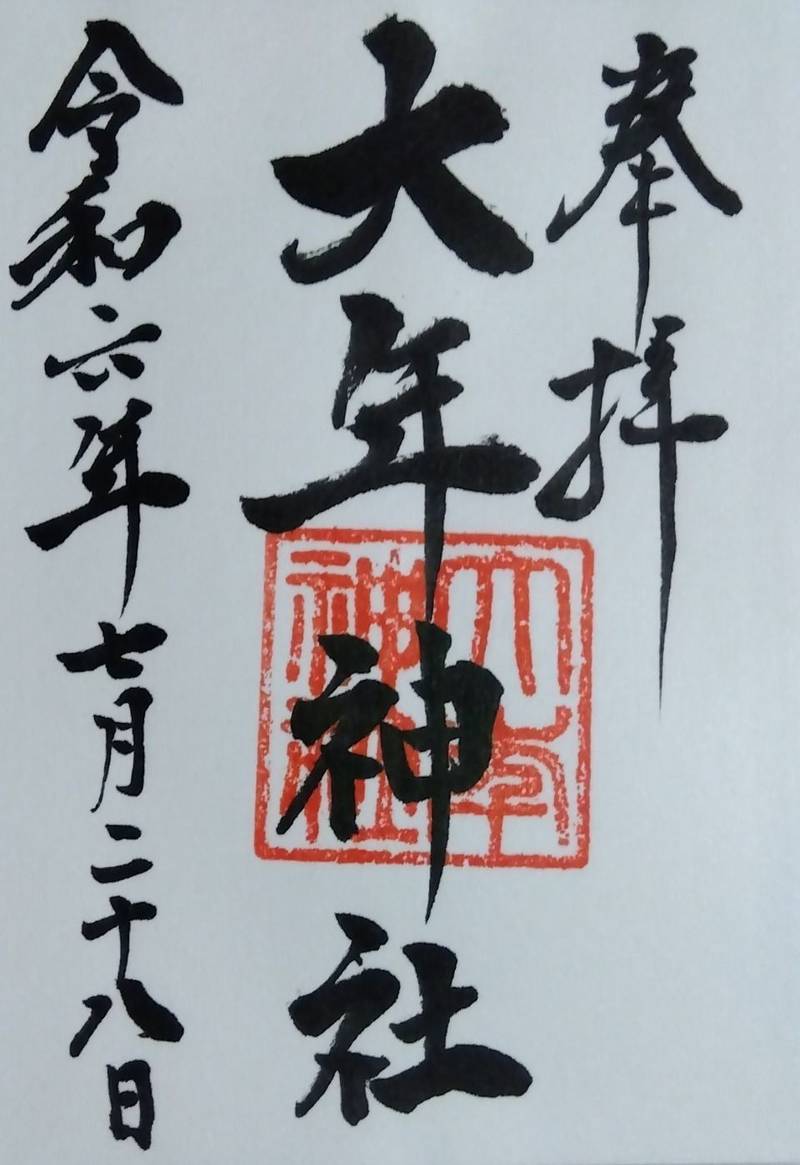 奉拝
大年神社
大年神社
令和六年七月二十八日